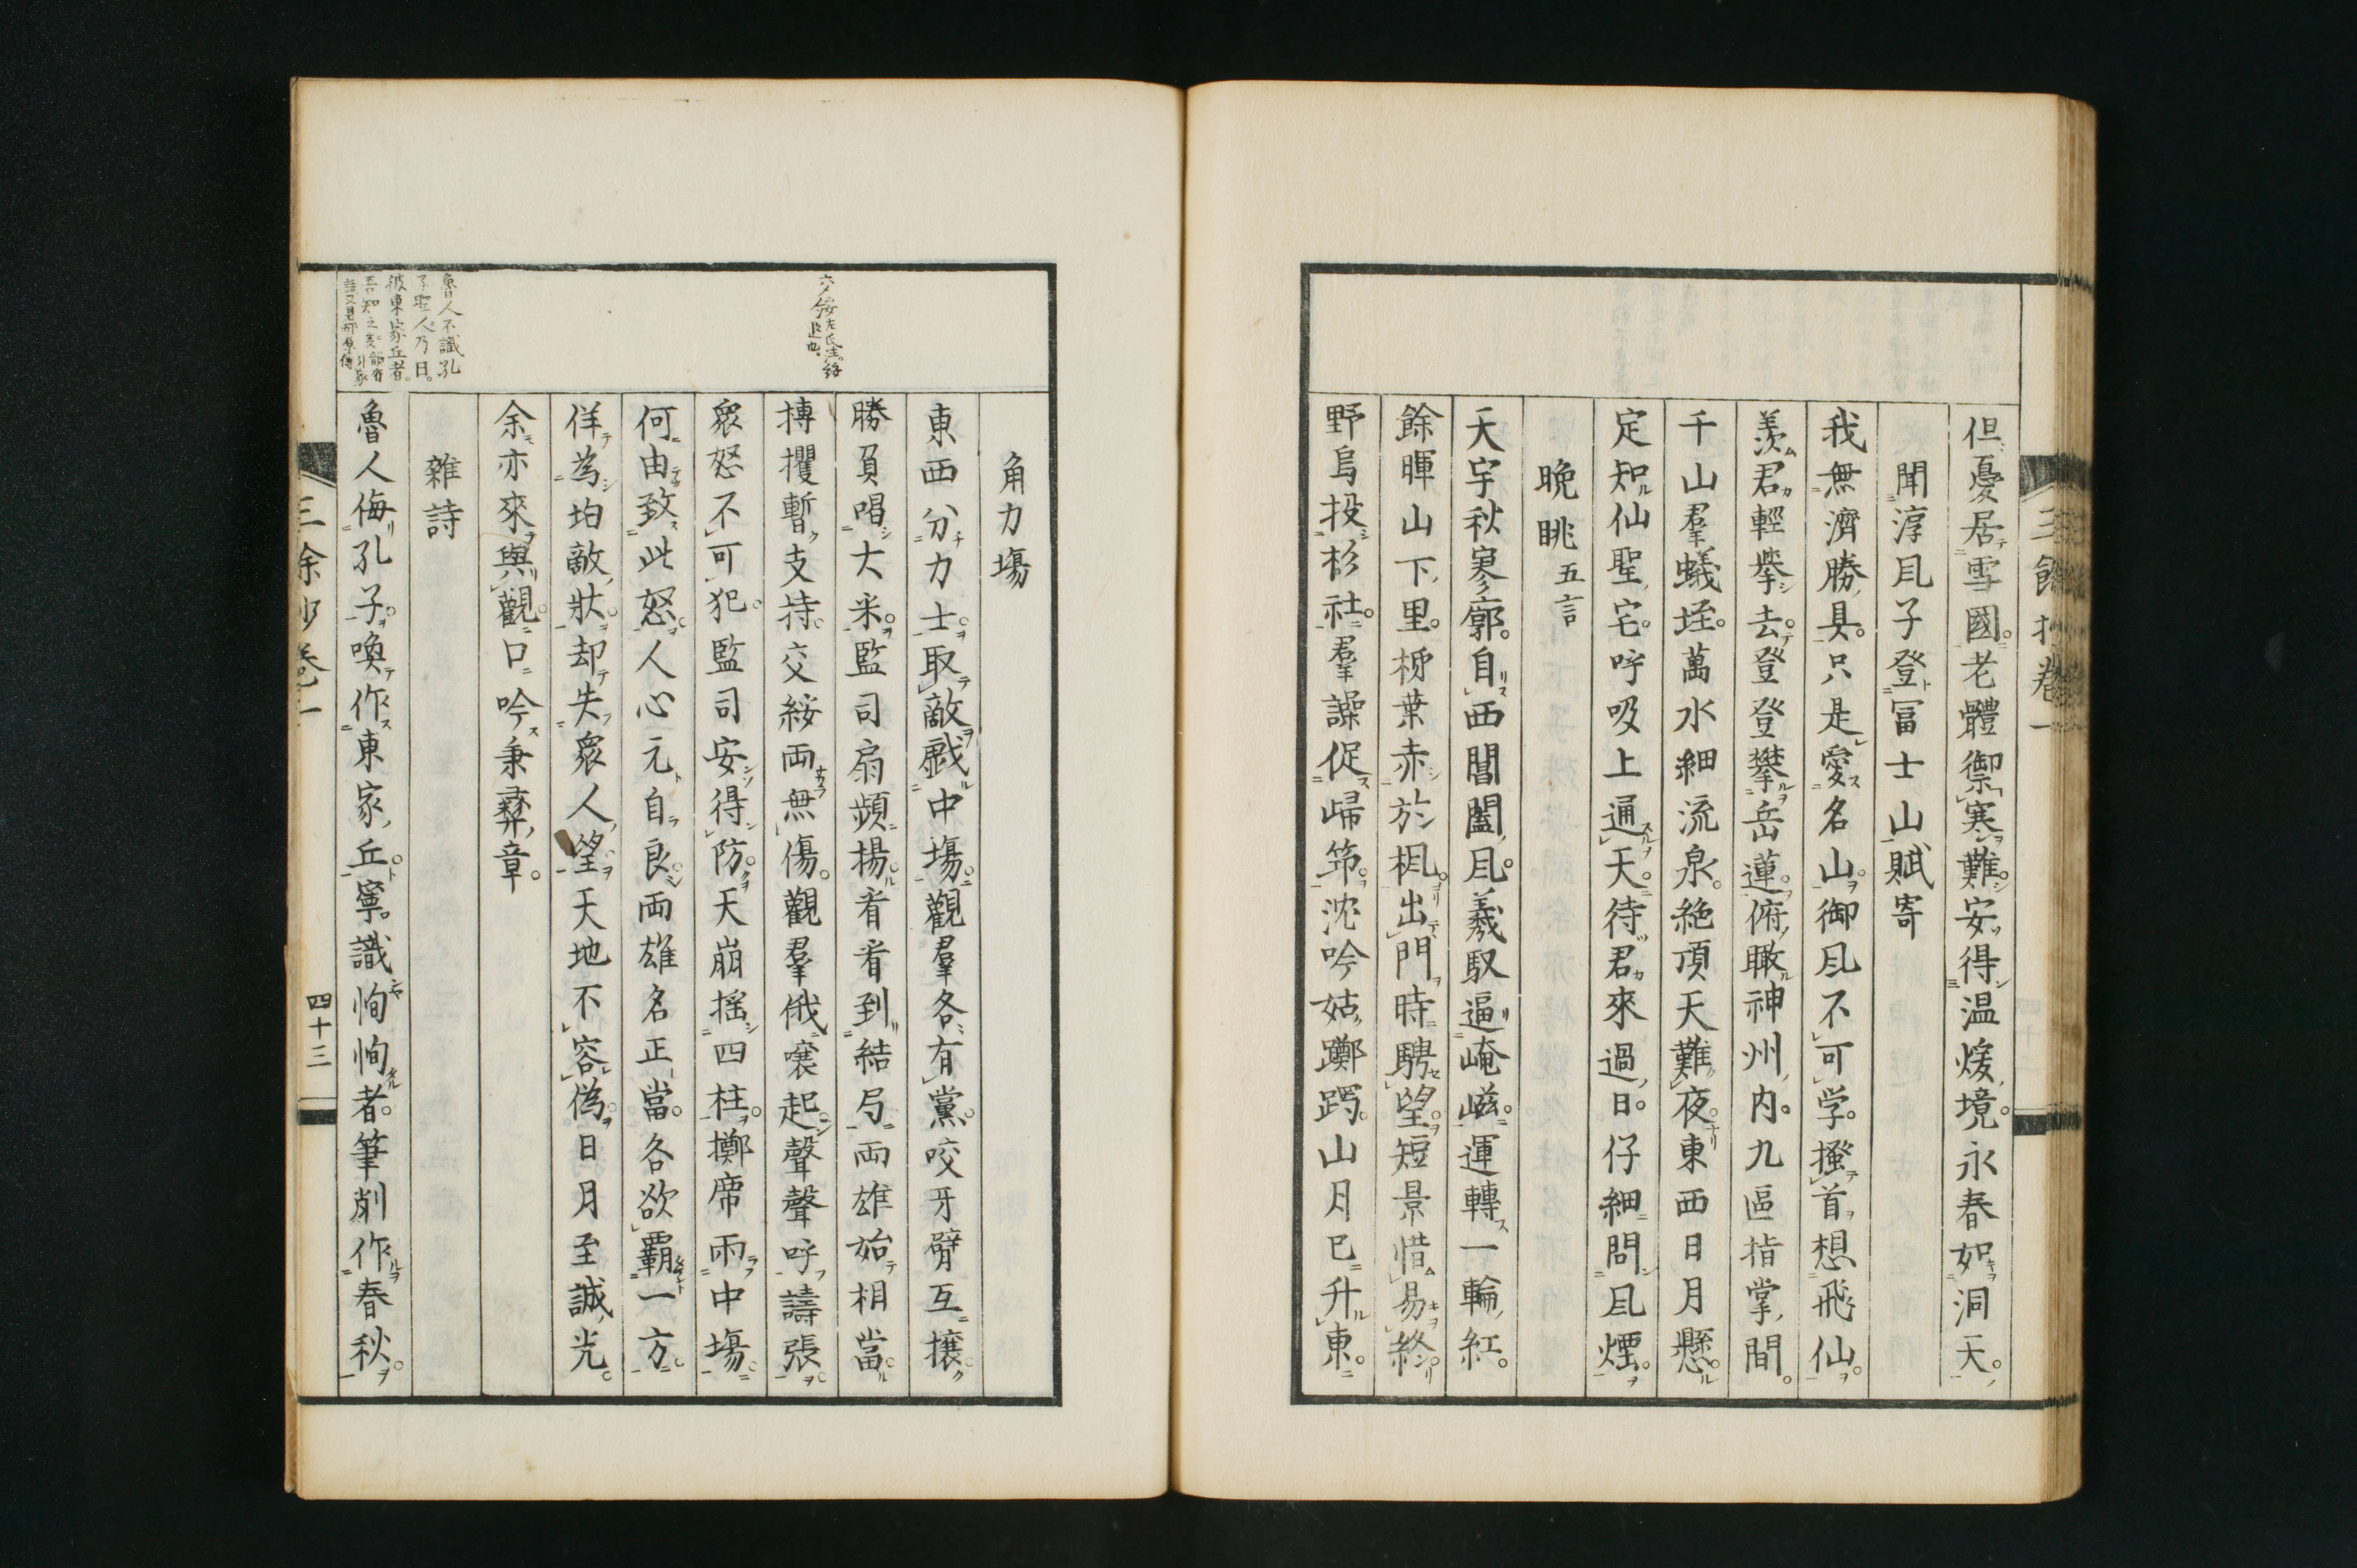 三餘抄卷一
但憂居雪國老體禦寒難安得温煖境永春如洞天
聞淳凬子登冨士山賦寄
我無濟勝具只是愛名山御凬不可学搔首想飛仙
羨君輕擧去登登攀岳蓮俯瞰神州内九區指掌間
千山羣蟻垤萬水細流泉絶頂天難夜東西日月懸
定知仙聖宅呼吸上通天待君來過日仔細問凬煙
晩眺五言
天宇秋寥廓自西閶闔凬羲馭逼崦嵫運轉一輪紅
餘暉山下里柹葉赤於楓出門時騁望短景惜易終
野烏投杉社羣譟促歸筇沈吟姑躑躅山月已升東
角力場
東西分力士取敵戲中場觀羣各有黨咬牙臂互攘
勝負唱大米監司扇頻揚看看到結局兩雄始相當
搏攫暫支持交綏兩無傷觀羣俄嚷起聲聲呼譸張
衆怒不可犯監司安得防天崩搖四柱擲席雨中場
何由致此怒人心元自良兩雄名正當各欲霸一方
佯為均敵狀却失衆人望天地不容偽日月至誠光
余亦來與觀口吟秉彝章
雜詩
魯人侮孔子喚作東家丘寧識恂恂者筆削作春秋
交綏左氏注綏
退也
魯人不識孔
子聖人乃曰
彼東家丘者
吾知之矣
三余抄卷一
四十三